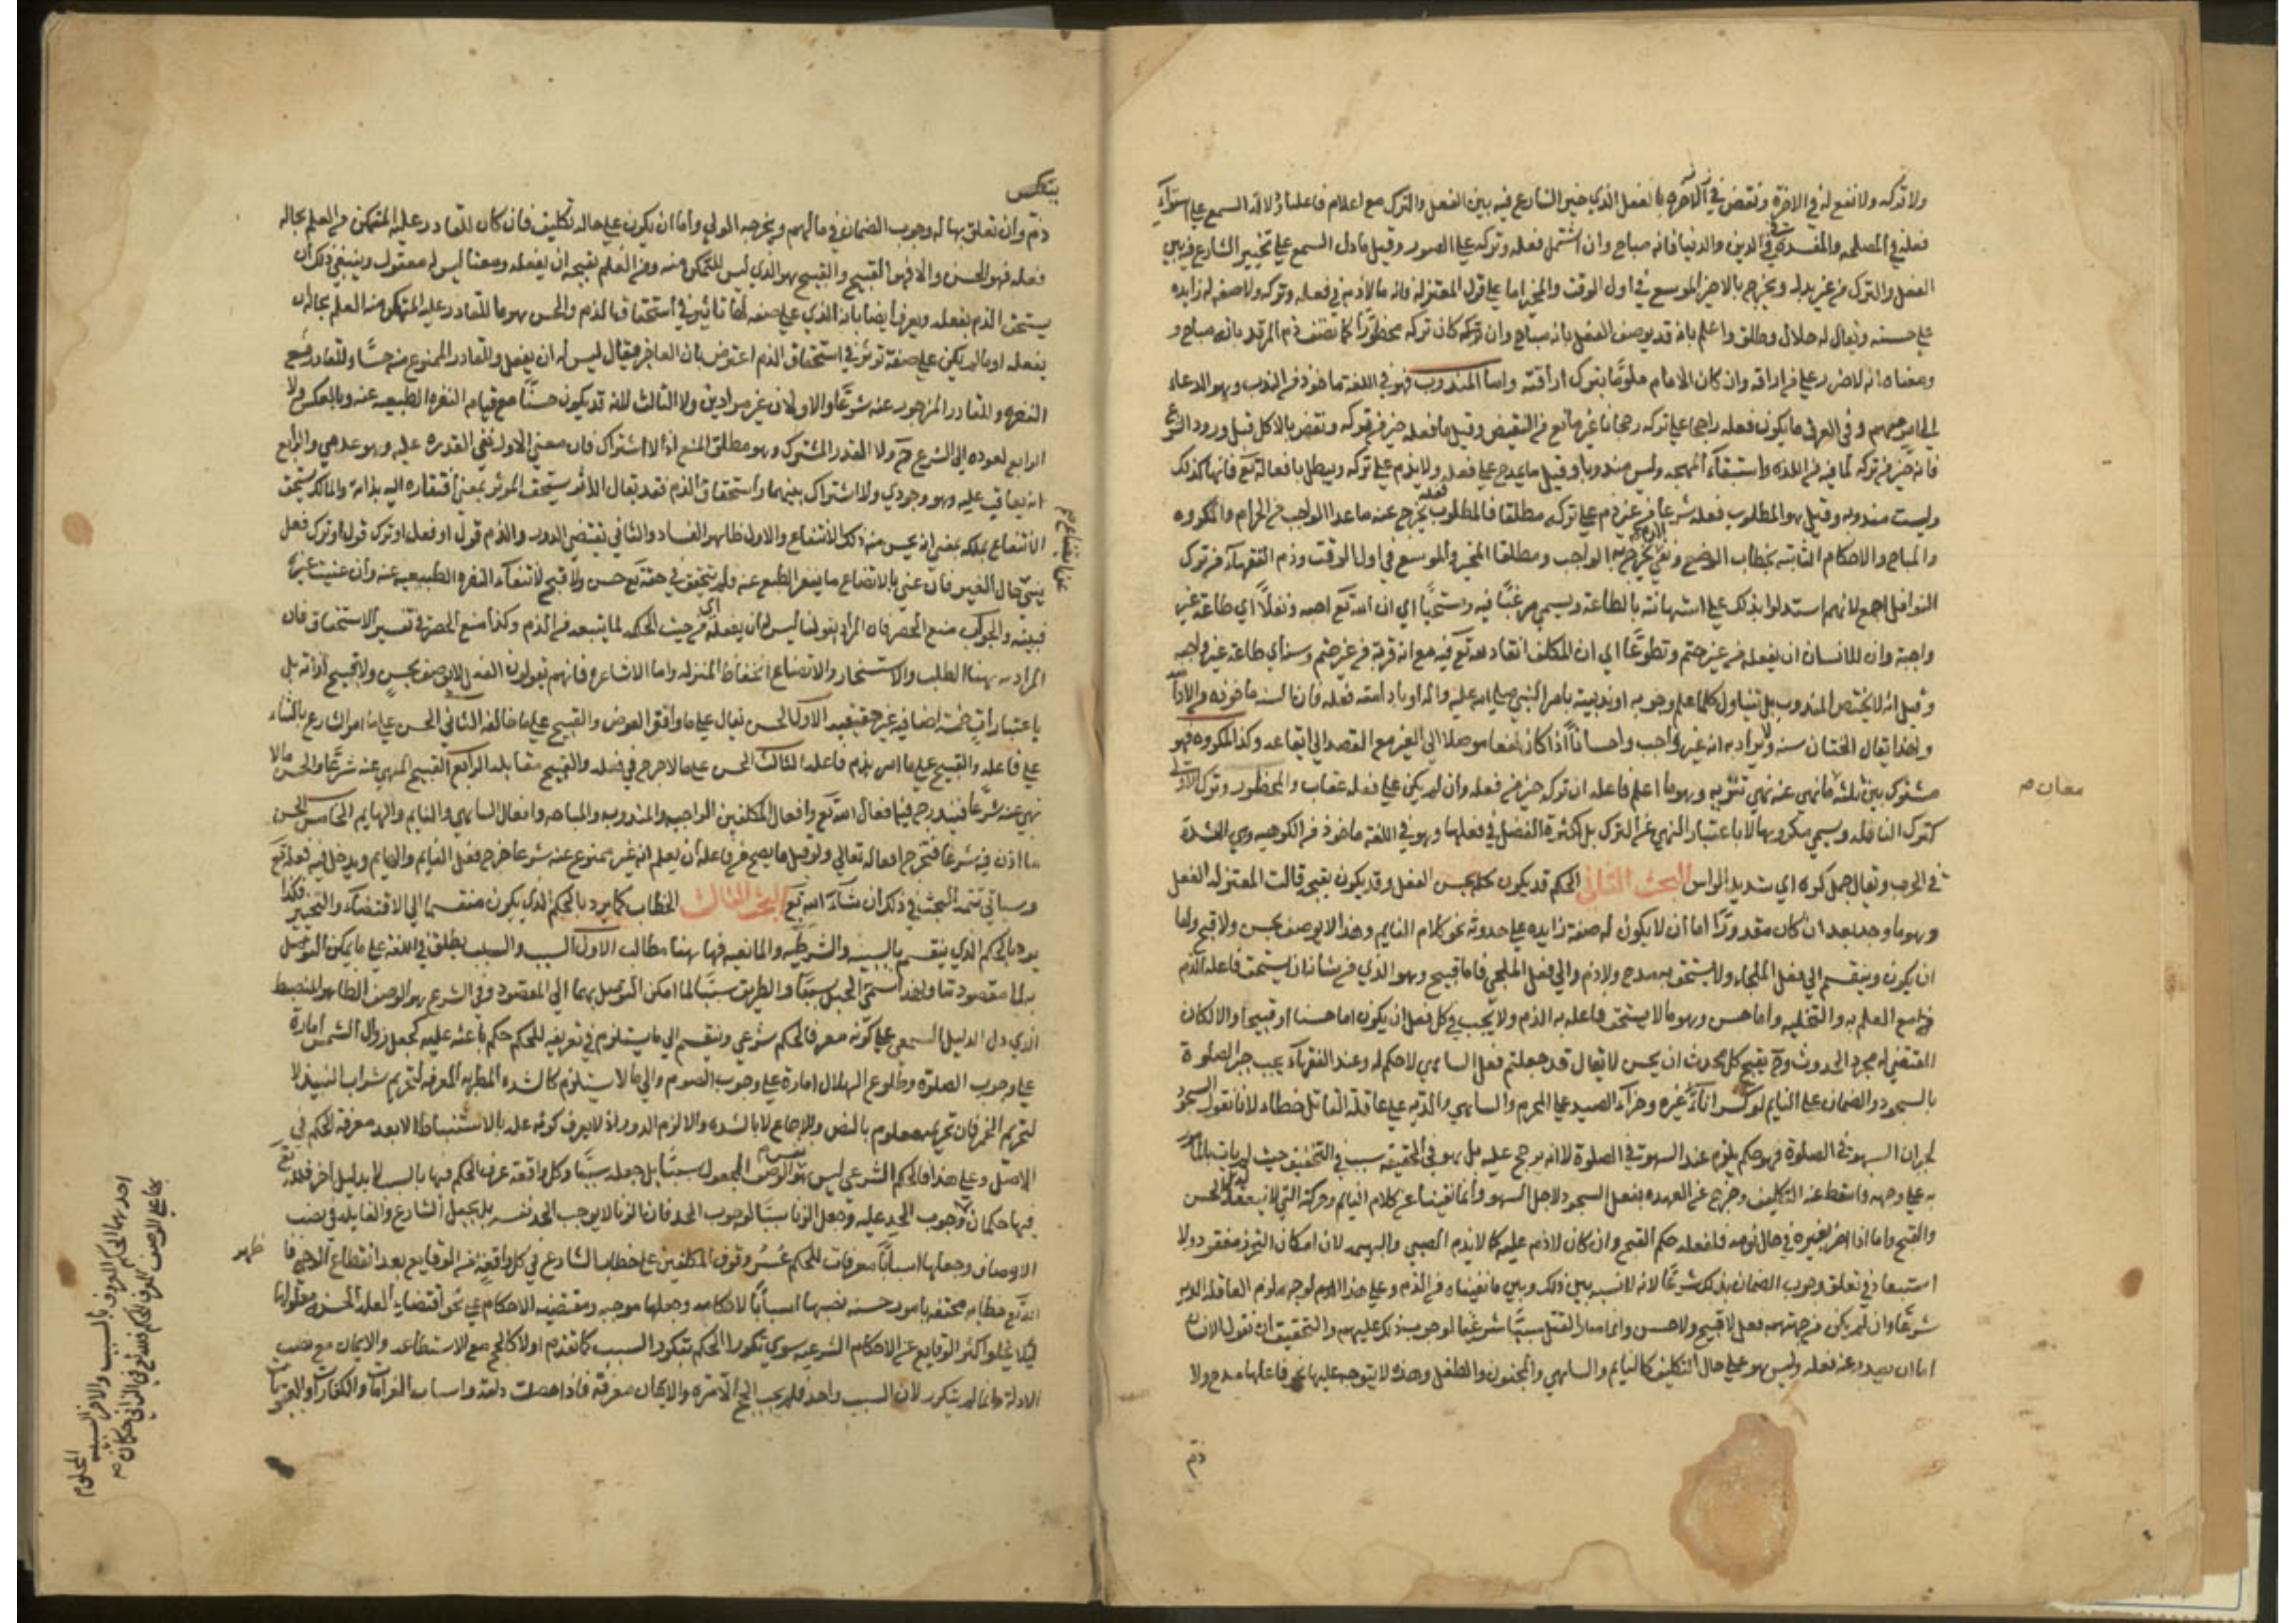 ولا تركه ولا نفع له في الاخرة ونقض في الآخرة بالفعل الذي خير الشارع فيه بين الفعل والترك مع اعلام فاعله او دلالة السمع على استواء
فعله في المصلحه والمفسدة في الدين والدنيا فانه مباح وان اشتمل فعله وتركه على الصور وقيل ما دل السمع على تخيير الشارع فيه بين
الفعل والترك من غير بدل ويخرج بالاخير الموسع في اول الوقت والمخير اما على قول المعتزلة فانه ما لاذم في فعله وتركه ولا صفة له زايده
على حسنه ويقال له حلال وطلق واعلم بانه قد يوصف الفعل بانه مباح وان تركه كان تركه محظورا كما نصف ذم المرتد بانه مباح و
ومعناه انه لا ضرر على من اراقه وان كان الامام ملوما بترك اراقته واما المندوب فهو في اللغة ماخوذ من الندب وهو الدعاء
الى امر مهم وفي العرف ما يكون فعله راجحا على تركه رجحانا غير مانع من النقيض وقيل ما فعله خير من تركه ونقض بالاكل قبل ورود الشرع
فانه خير من تركه لما فيه من اللذة واستبقاء المهجه وليس مندوبا وقيل ما يمدح على فعله ولا يذم على تركه ويبطل بافعاله تع فانها كذلك
وليست مندوبه وقيل هو المطلوب فعله شرعا من غير ذم على تركه مطلقا فالمطلوب فعله يخرج عنه ما عدا الواجب من الحرام والمكروه
والمباح والاحكام الثابته بخطاب الوضع ونفي الذم يخرج به الواجب ومطلقا المخير والموسع في اول الوقت وذم الفقهاء من ترك
النوافل اجمع لانهم استدلوا بذلك على استهانته بالطاعة ويسمى مرغبا فيه ومستحبا اي ان الله تع احبه ونفلا اي طاعة غير
واجبة وان للانسان ان يفعله من غير حتم وتطوعا اي ان المكلف انقاد لله تع فيه مع انه قربة من غير حتم وسنة اي طاعة غير واجبه
وقيل انه لا يختص المندوب بل تتناول كلما علم وجوبه او ندبيته بامر النبي صلى الله عليه واله او بادامته فعله فان السنه ماخوذه من الادامة
ولهذا يقال الختان سنه ولا يراد به انه غير واجب واحسانا اذا كان نفعا موصلا الى الغير مع القصد الى ايقاعه وكذا المكروه فهو
مشترك بين ثلثة ما نهي عنه نهي تنزيه وهو ما اعلم فاعله ان تركه خير من فعله وان لم يكن على فعله عقاب والمحظور وترك الاولى
كترك النافله ويسمى مكروها لا باعتبار النهي عن الترك بل لكثرة الفضل في فعلها وهو في اللغة ماخوذ من الكريهه وهي الشدة
في الحرب ويقال جمل كره اي شديد الراس البحث الثاني الحكم قد يكون بحسن الفعل وقد يكون بقبحه قالت المعتزله الفعل
وهو ما وجد بعد ان كان مقدورا اما ان لا يكون له صفة زايده على حدوثه نحو كلام النايم وهذا لا يوصف بحسن ولا قبح واما
ان يكون وينقسم الى فعل الملجاء ولا يستحق به مدح ولا ذم والى فعل المخلى فاما قبيح وهو الذي من شانه ان يستحق فاعله الذم
مع العلم به والتخليه واما حسن وهو ما لا يستحق فاعله به الذم ولا يجب في كل فعل ان يكون اما حسنا او قبيحا والا لكان
المقتضي له مجرد الحدوث وح يقبح كل محدث ان يحسن لا يقال قد جعلتم فعل الساهي لا حكم له وعند الفقهاء يجب جبر الصلوة
بالسجود والضمان على النايم لو كسر اناء غيره وجزاء الصيد على المحرم والساهي والدية على عاقلة القاتل خطاء لانا نقول السجود
لجبران السهو في الصلوة فهو حكم يلزم عند السهو في الصلوة لا انه يرجع عليه بل هو في الحقيقه سبب في التحقيق حيث لم يات بالمامور
به على وجهه واسقط عنه التكليف وخرج عن العهده بفعل السجود لاجل السهو وانما نفينا عن كلام النايم وحركته التي لا نفع فيها الحسن
والقبح واما اذا اضر بغيره في حال نومه فلفعله حكم القبح وان كان لا ذم عليه كما لا يذم الصبي والبهيمه لان امكان التحرز مفقود ولا
استبعاد في تعلق وجوب الضمان بذلك شرعا لانه لا نسبه بين ذلك وبين ما نفيناه من الذم وعلى هذا اللزوم لوجه ملزوم العاقله الدية
شرعا وان لم يكن من جهتهم فعل لا قبيح ولا حسن وانما صار القتل سببا شرعيا لوجوب ذلك عليهم والتحقيق ان نقول الانسان
اما ان يصدر عنه فعله وليس هو على حال التكليف كالنايم والساهي والمجنون والطفل وهذه لا يتوجه عليها نحو فاعلها مدح ولا
ذم
معان صح
ذم وان تعلق بها له وجوب الضمان في مالهم ويخرجه الولي واما ان يكون على حاله تكليف فان كان للقادر عليه المتمكن من العلم بحاله
فعله فهو الحسن والا فهو القبيح والقبيح هو الذي ليس للمتمكن منه ومن العلم بقبحه ان يفعله ومعنا ليس له معقول وينبغي ذلك ان
يستحق الذم بفعله ويعرف ايضا بانه الذي على صفة لها تاثير في استحقاق الذم والحسن هو ما للقادر عليه المتمكن من العلم بحاله ان
يفعله او ما لم يكن على صفة توثر في استحقاق الذم اعترض بان العاجز يقال ليس له ان يفعل وللقادر الممنوع منه حسا وللقادر مع
النفره وللقادر المزجور عنه شرعا والاولان غير مرادين ولا الثالث لانه قد يكون حسنا مع قيام النفره الطبيعيه عنه وبالعكس ولا
الرابع لعوده الى الشرع ح ولا القدر المشترك وهو مطلق المنع اذ لا اشتراك فان معنى الاول نفي القدره عليه وهو عدمي والرابع
انه يعاقب عليه وهو وجودي ولا اشتراك بينهما واستحقاق الذم فقد يقال للاثر يستحق الموثر بمعنى افتقاره اليه بذاته والمالك يستحق
الانتفاع بملكه بمعنى انه يحسن منه ذلك الانتفاع والاول ظاهر الفساد والثاني يقتضي الدور والذم قول او فعل او ترك قول او ترك فعل
ينبي حال الغير فان عني بالاتضاع ما ينفر الطبع عنه فلم يتحقق في حقه تع حسن ولا قبح لانتفاء النفره الطبيعيه عنه وان عنيت غيره
فبينه والجواب منع الحصر فان المراد بقولنا ليس له ان يفعله اي من حيث الحكمه لما يتبعه من الذم وكذا منع الحصر في تفسير الاستحقاق فان
المراد به هنا الطلب والاستنجاز والاتضاع انخفاض المنزله واما الاشاعره فانهم يقولون الفعل لا يوصف بحسن ولا قبح لذاته بل
باعتبارات خمسة اضافيه غير حقيقيه الاول الحسن يقال على ما وافق الغرض والقبيح على ما خالفه الثاني الحسن على ما امر الشارع بالثناء
على فاعله والقبيح على ما امر بذم فاعله الثالث الحسن على ما لا حرج في فعله والقبيح مقابله الرابع القبيح المنهي عنه شرعا والحسن ما لا
نهي عنه شرعا فيندرج فيه افعال الله تع وافعال المكلفين الواجبه والمندوبه والمباحه وافعال الساهي والنايم والبهايم الخامس الحسن
ما اذن فيه شرعا فتخرج افعاله تعالى ولو قيل ما يصح من فاعله ان يعلم انه غير ممنوع عنه شرعا خرج فعل النايم والبهايم ويدخل فيه فعله تع
وسياتي تتمة البحث في ذلك ان شاء الله تع البحث الثالث الخطاب كما يرد بالحكم الذي يكون منقسما الى الاقتضاء والتخيير فكذا
يرد بالحكم الذي ينقسم بالسببيه والشرطيه والمانعيه فها هنا مطالب الاول السبب والسبب يطلق في اللغة على ما يمكن التوصل
به الى مقصود ما ولهذا سمي الحبل سببا والطريق سببا لما امكن التوصل بهما الى المقصود وفي الشرع هو الوصف الظاهر المنضبط
الذي دل الدليل السمعي على كونه معرفا لحكم شرعي وينقسم الى ما يستلزم في تعريفه للحكم حكمة باعثه عليه كجعل زوال الشمس امارة
على وجوب الصلوة وطلوع الهلال امارة على وجوب الصوم والى ما لا يستلزم كالشده المطربه المعرفه لتحريم شراب النبيذ لا
لتحريم الخمر فان تحريمه معلوم بالنص والاجماع لا بالشده والا لزم الدور اذ لا يعرف كونه علة بالاستنباط الا بعد معرفة الحكم في
الاصل وعلى هذا فالحكم الشرعي ليس هو نفس الوصف المجعول سببا بل جعله سببا وكل واقعة عرف الحكم فيها بالسبب لا بدليل اخر فلله تع
فيها حكمان وجوب الحد عليه وجعل الزنا سببا لوجوب الحد فان الزنا لا يوجب الحد نفسه بل بجعل الشارع والفايده في نصب
الاوصاف وجعلها اسبابا معرفات للحكم عسر وقوف المكلفين على خطاب الشارع في كل واقعة من الوقايع بعد انقطاع الوحي فا
الله تع خطابه محتفه بامور حسنه نصبها اسبابا لاحكامه وجعلها موجبه ومقتضيه الاحكام على نحو اقتضاء العله الحسيه معلولها
ليلا يخلوا اكثر الوقايع عن الاحكام الشرعيه سوى تكرر الحكم بتكرر السبب كما تقدم اولا كالحج مع الاستطاعه والايمان مع نصب
الادلة وانما لم يتكرر لان السبب واحد فلم يجب الحج الا مرة والايمان معرفة فاذا حصلت دامت واسباب الغرامات والكفارات والعقوبات
احدهما الحكم المعروف بالسبب والاخر السببيه